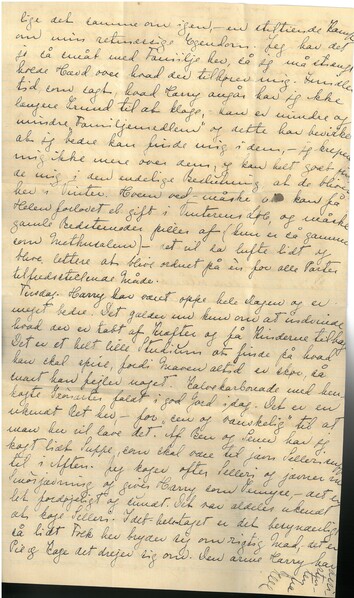 lige det samme om igen, en stiltiende Kamp
om min retmæssige Ejendom. Jeg har det
jo så småt med Familie her, så jeg må strengt
hvad der tilhører mig. Imidler
tid som sagt, hvad Harry angår har jeg ikke
længere Grund til at klage; han er mindre og
mindre "Familjemedlem" og dette har bevirket
at jeg bedre kan finde mig i dem, jeg
mig ikke mere over dem, og kan helt godt
de mig i den endelige Beslutning, at de bliver
her i Vinter. Hvem ved måske vi kan få
Helen forlovet el. gift i Vinterens Løb, og måske
gamle Bedstemoder pilles af (hun er så gammel
som Methusalem) - set vil da lufte lidt og
blive lettere at blive ordnet på en for alle Parter
tilfredsstillende Måde.
Tirsdag. Harry har været oppe hele dagen og er
meget bedre. Det gælder nu kun om at indvinde
hvad der er tabt af Kræfter og få Kinderne tilbage
Det er et helt lille Studium at finde på hvad
han skal spise, fordi Maven altid er skør, så
snart han fejler noget.
kogte Tomater faldt i god Jord i dag. Det er en
ukendt Ret her - for "den er vanskelig" til at
man her vil lave det. Af Ben og Senner har jeg
kogt lidt Suppe, som skal være til
til i Aften. Jeg koger ofte Selleri og gavner en
Smørjævning og giver Harry som Grønt, - det er
let fordøjeligt og sundt. Det var aldeles ukendt
at koge Selleri. I det hele taget er det besynderligt
så lidt Folk her bryder sig om rigtig Mad, det er
Pie og Cage det drejer sig om. Den arme Harry har